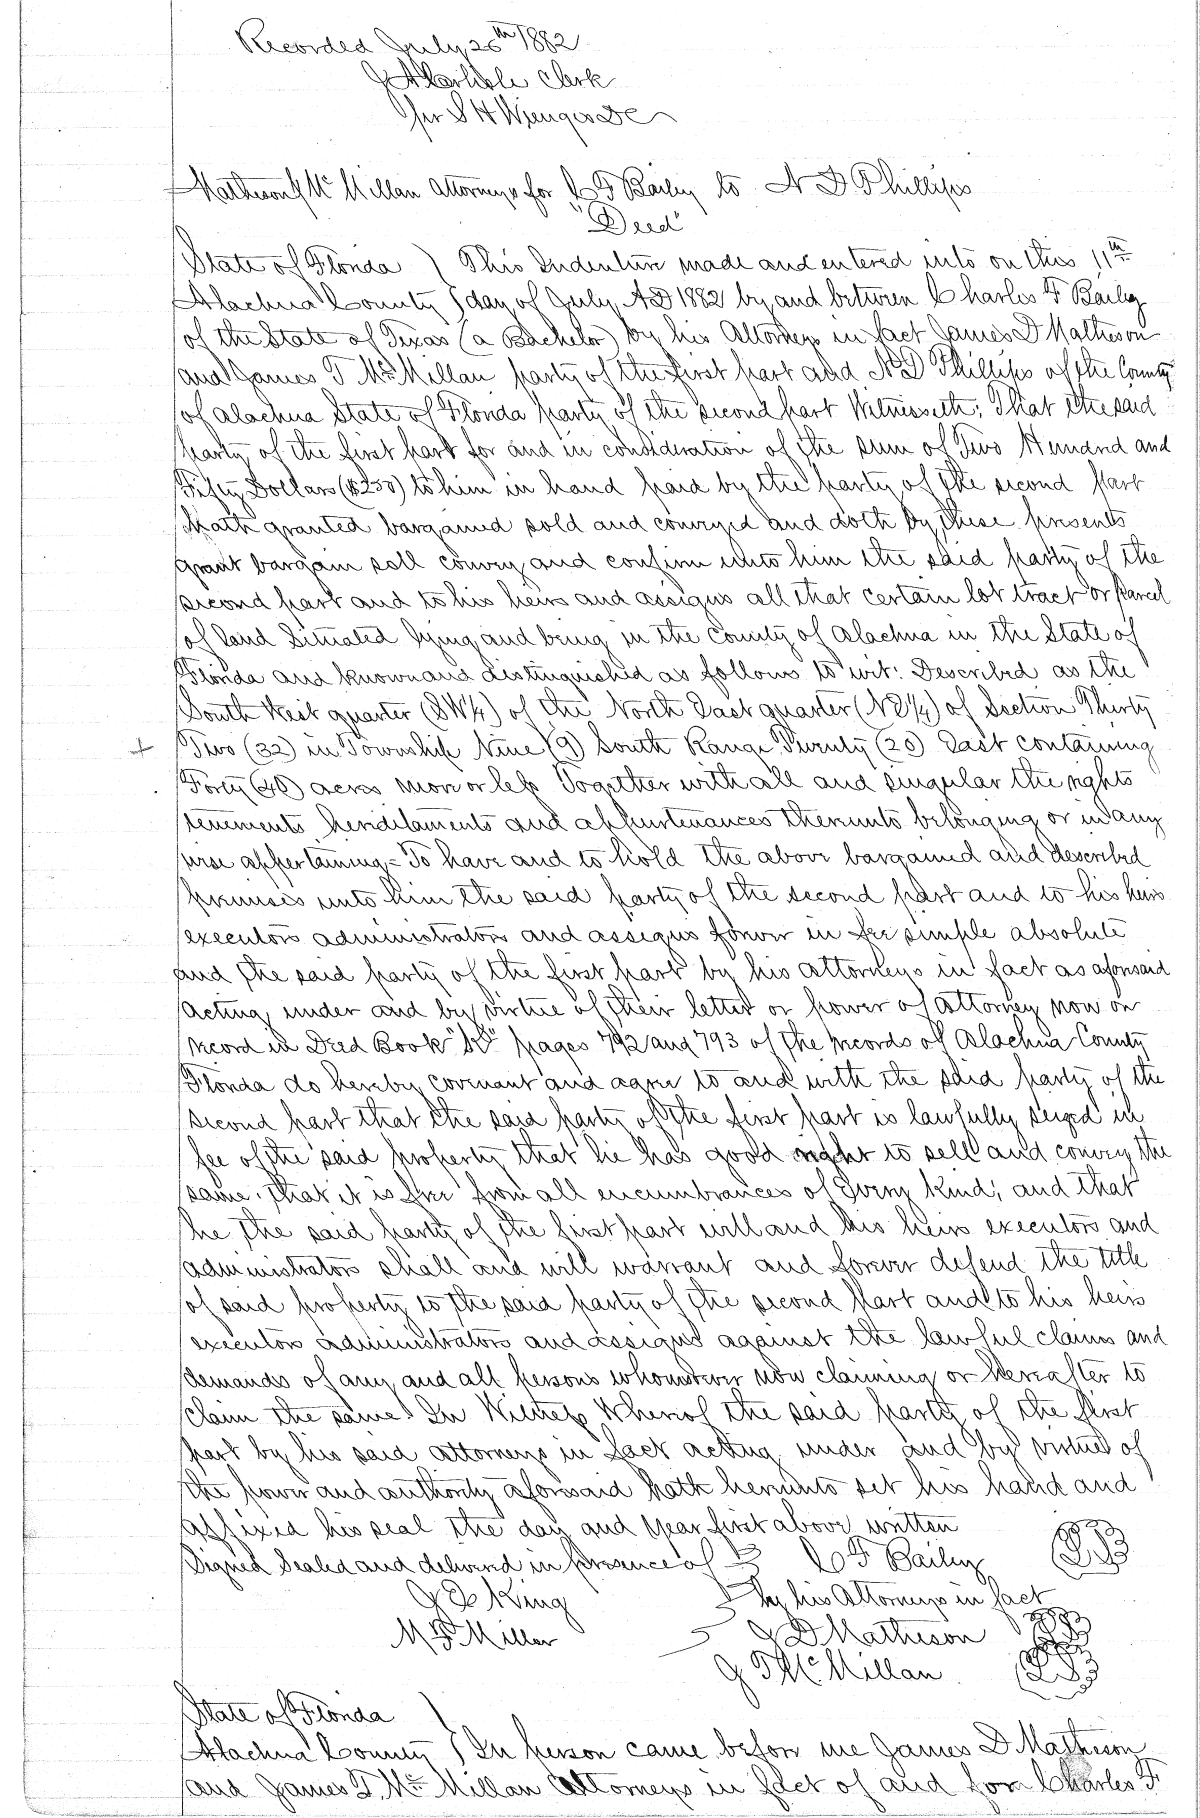 Recorded July 26th 1882
J A Carlisle Clerk
per S H Wienges DC
Matheson & McMillan Attorneys for C F Bailey to N D Phillips
"Deed"
State of Florida ) This Indenture made and entered into on this 11th
Alachua County ) day of July AD 1882 by and between Charles F Bailey
of the State of Texas (a Bachelor) by his Attorneys in fact James D Matheson
and James T McMillan party of the first part and N D Phillips of the County
of Alachua State of Florida party of the second part Witnesseth; That the said
party of the first part for and in consideration of the sum of Two Hundred and
Fifty Dollars ($250) to him in hand paid by the party of the second part
hath granted bargained sold and conveyed and doth by these presents
grant bargain sell convey and confirm unto him the said party of the
second part and to his heirs and assigns all that certain lot tract or Parcel
of land Situated lying and being in the County of Alachua in the State of
Florida and known and distinguished as follows to wit: Described as the
South West quarter (SW¼) of the North East quarter (NE¼) of Section Thirty
Two (32) in Township Nine (9) South Range Twenty (20) East containing
Forty (40) acres more or less Together with all and singular the rights
tenements hereditaments and appurtenances thereunto belonging or in any
wise appertaining = To have and to hold the above bargained and described
premises unto him the said party of the second part and to his heirs
executors administrators and assigns forever in fee simple absolute
and the said party of the first part by his attorneys in fact as aforesaid
acting under and by virtue of their letter or power of attorney now on
record in Deed Book pages 792 and 793 of the records of Alachua County
Florida do hereby covenant and agree to and with the said party of the
second part that the said party of the first part is lawfully seized in
fee of the said property that he has good right to sell and convey the
same, that it is free from all encumbrances of Every Kind; and that
he the said party of the first part will and his heirs executors and
administrators shall and will warrant and forever defend the title
of said property to the said party of the second part and to his heirs
executors administrators and assigns against the lawful claims and
demands of any and all persons whomsoever now claiming or hereafter to
claim the same. In Witness Whereof the said party of the first
part by his said attorneys in fact acting under and by virtue of
the power and authority aforesaid hath hereunto set his hand and
affixed his seal the day and year first above written
Signed Sealed and delivered in presence of } C F Bailey LS
J E King } by his Attorneys in fact
M F Miller } J D Matheson LS
J T McMillan LS
State of Florida )
Alachua County ) In person came before me James D Matheson
and James T. McMillan Attorneys in fact of and for Charles F